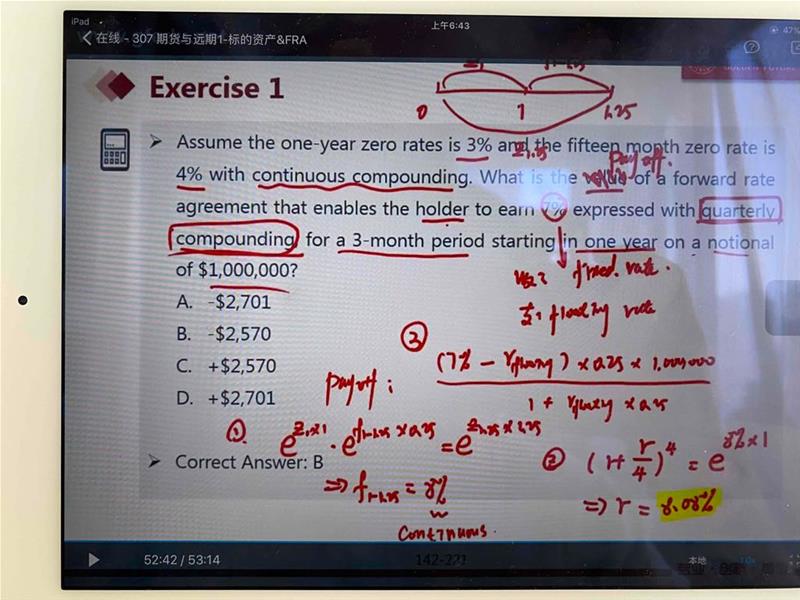 iPad
上午6:43
47%
在线 - 307 期货与远期1-标的资产&FRA
Exercise 1
0 1 1.25
➤ Assume the one-year zero rates is 3% and the fifteen month zero rate is
4% with continuous compounding. What is the value of a forward rate
payoff.
agreement that enables the holder to earn 7% expressed with quarterly
compounding for a 3-month period starting in one year on a notional
of $1,000,000?
fixed rate.
A. -$2,701
floating rate
B. -$2,570
③
C. +$2,570
payoff: (7% - rfloating) × 0.25 × 1,000,000
1 + rfloating × 0.25
D. +$2,701
① e^{z1×1} · e^{f1-1.25×0.25} = e^{z1.25×1.25}
② (1+ r/4)^4 = e^{8%×1}
➤ Correct Answer: B
⇒ f1-1.25 = 8%
⇒ r = 8.08%
continuous.
52:42 / 53:14
142-221
本地
1.0x